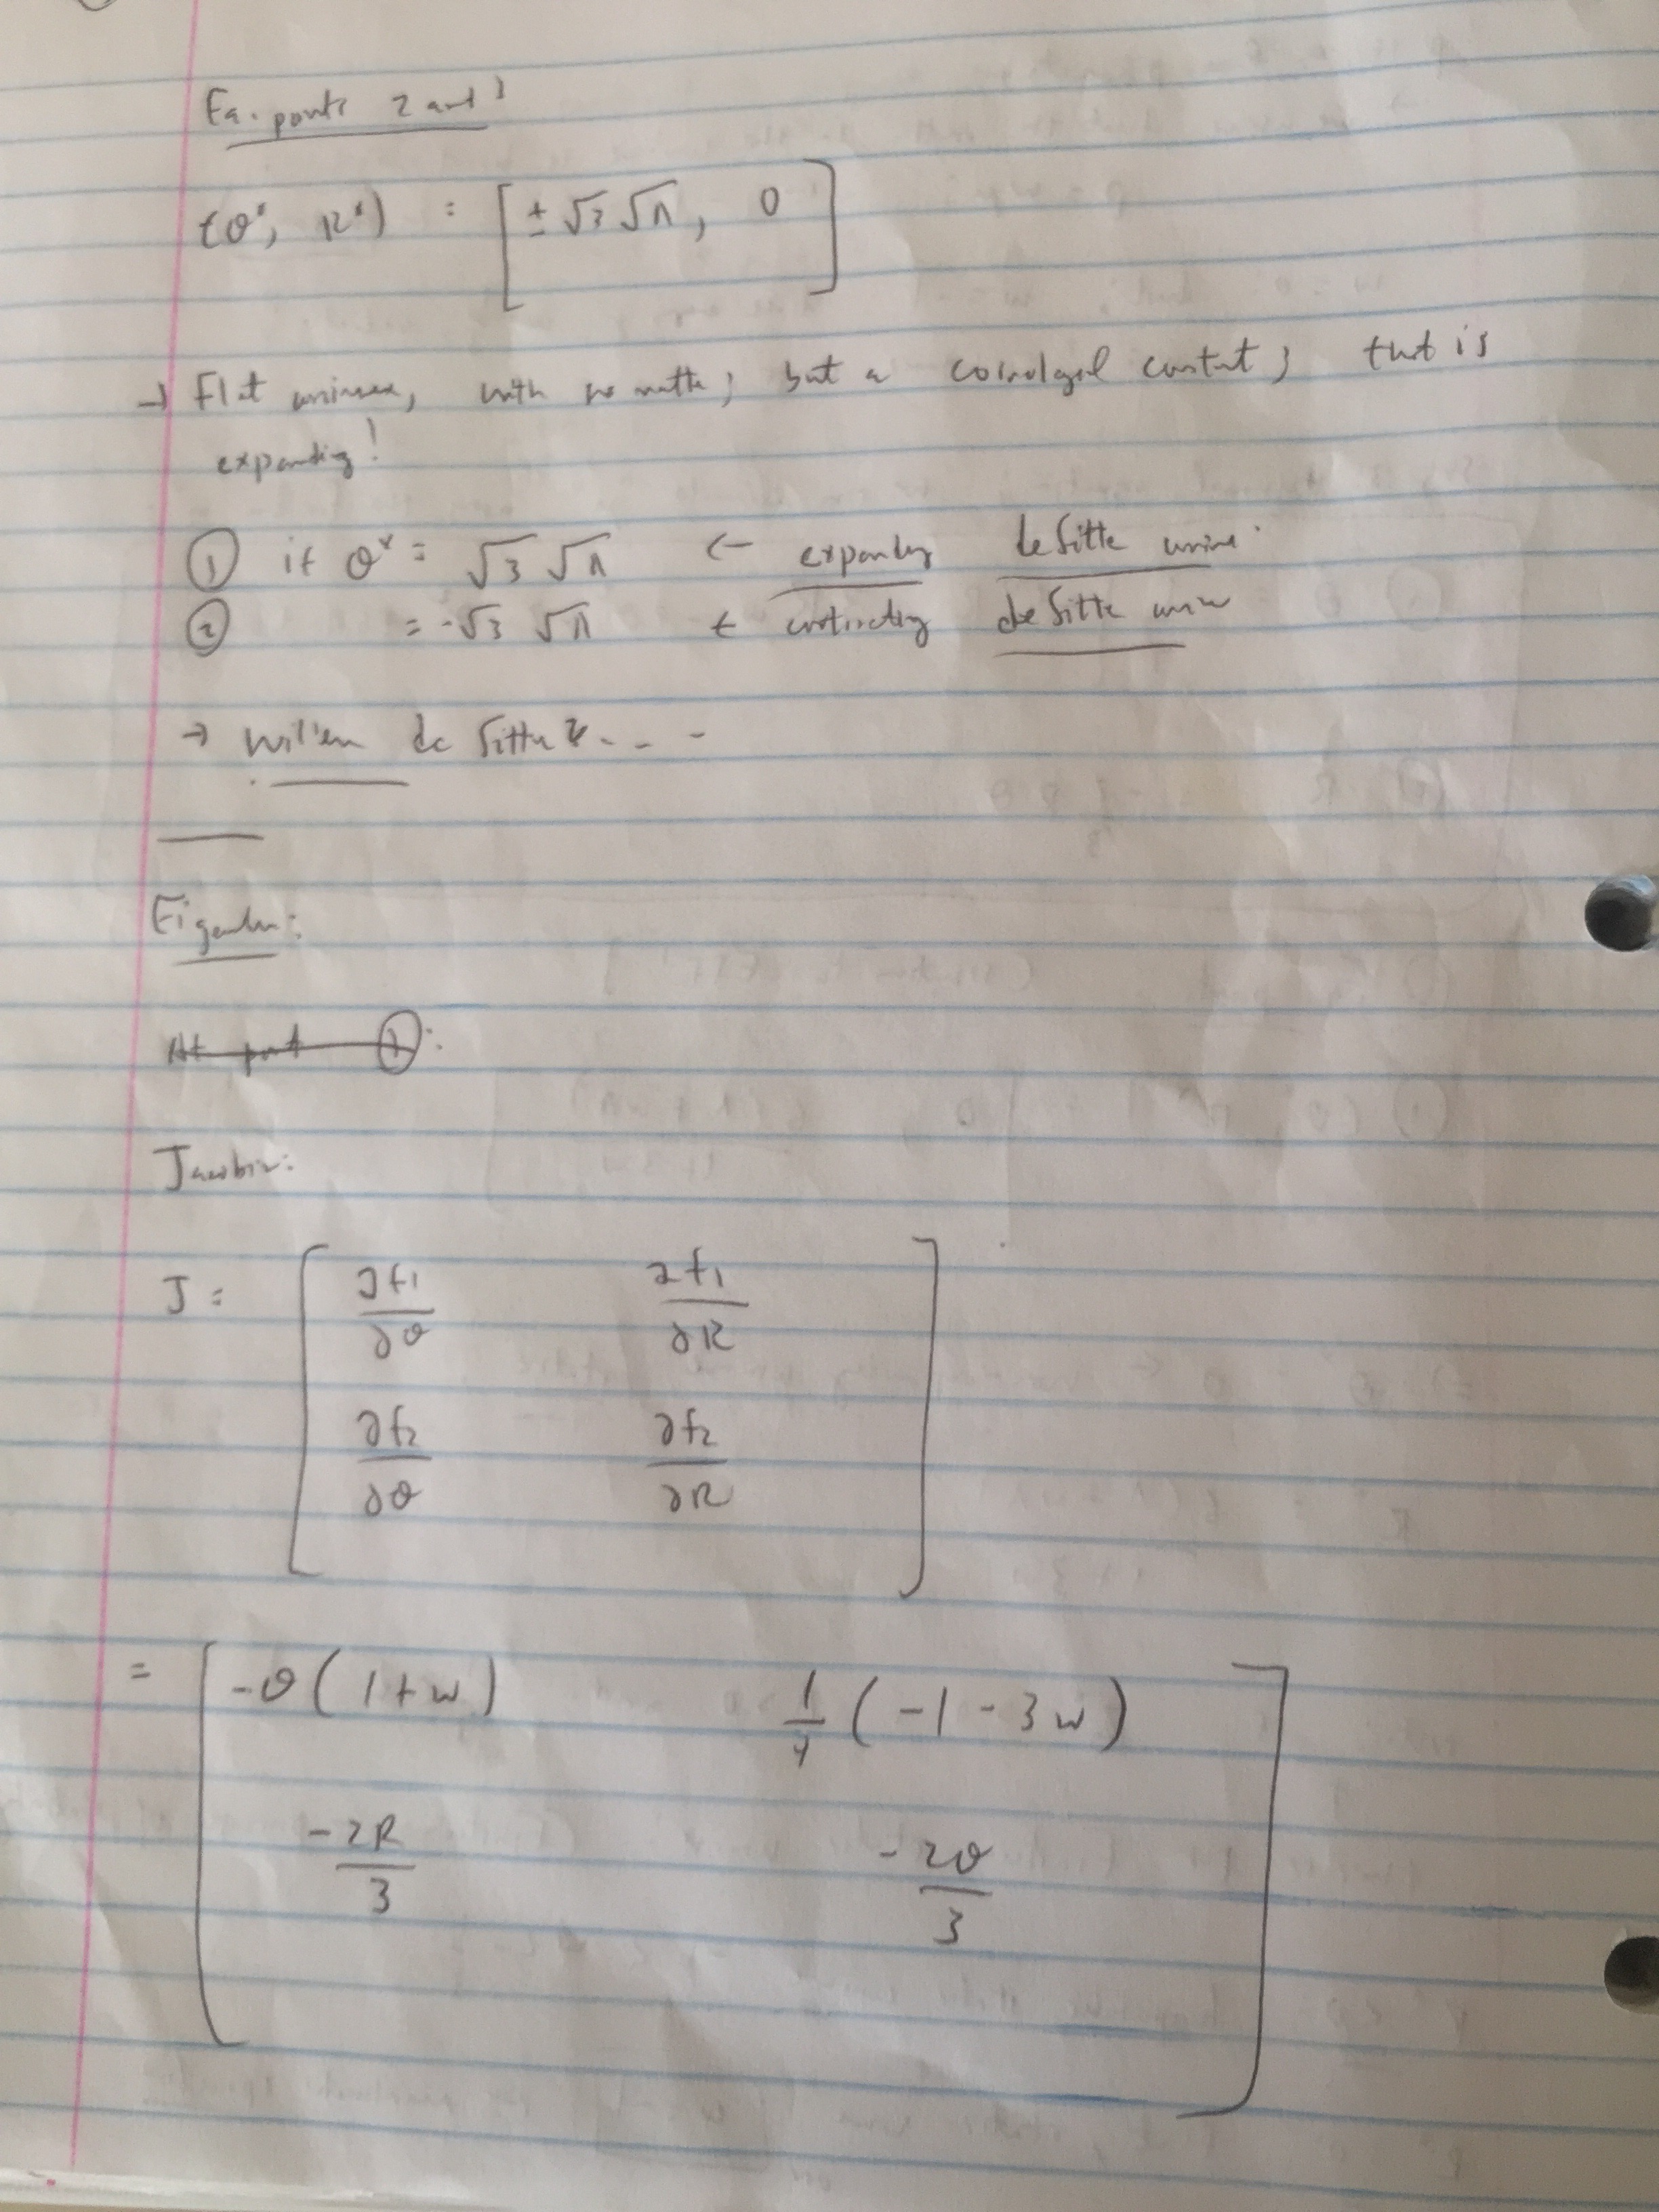 Eq. points 2 and 3
(θ*, R*) = [ ±√3 √Λ, 0 ]
→ Flat universe, with no matter, but a cosmological constant; that is
expanding!
① if θ* = √3 √Λ ← expanding de Sitter universe.
② = -√3 √Λ ← contracting de Sitter universe
→ Willem de Sitter - - -
Eigenvalues:
At point ①:
Jacobian:
J = [ ∂f₁/∂θ ∂f₁/∂R
∂f₂/∂θ ∂f₂/∂R ]
= [ -θ(1+w) 1/4 (-1-3w)
-2R/3 -2θ/3 ]